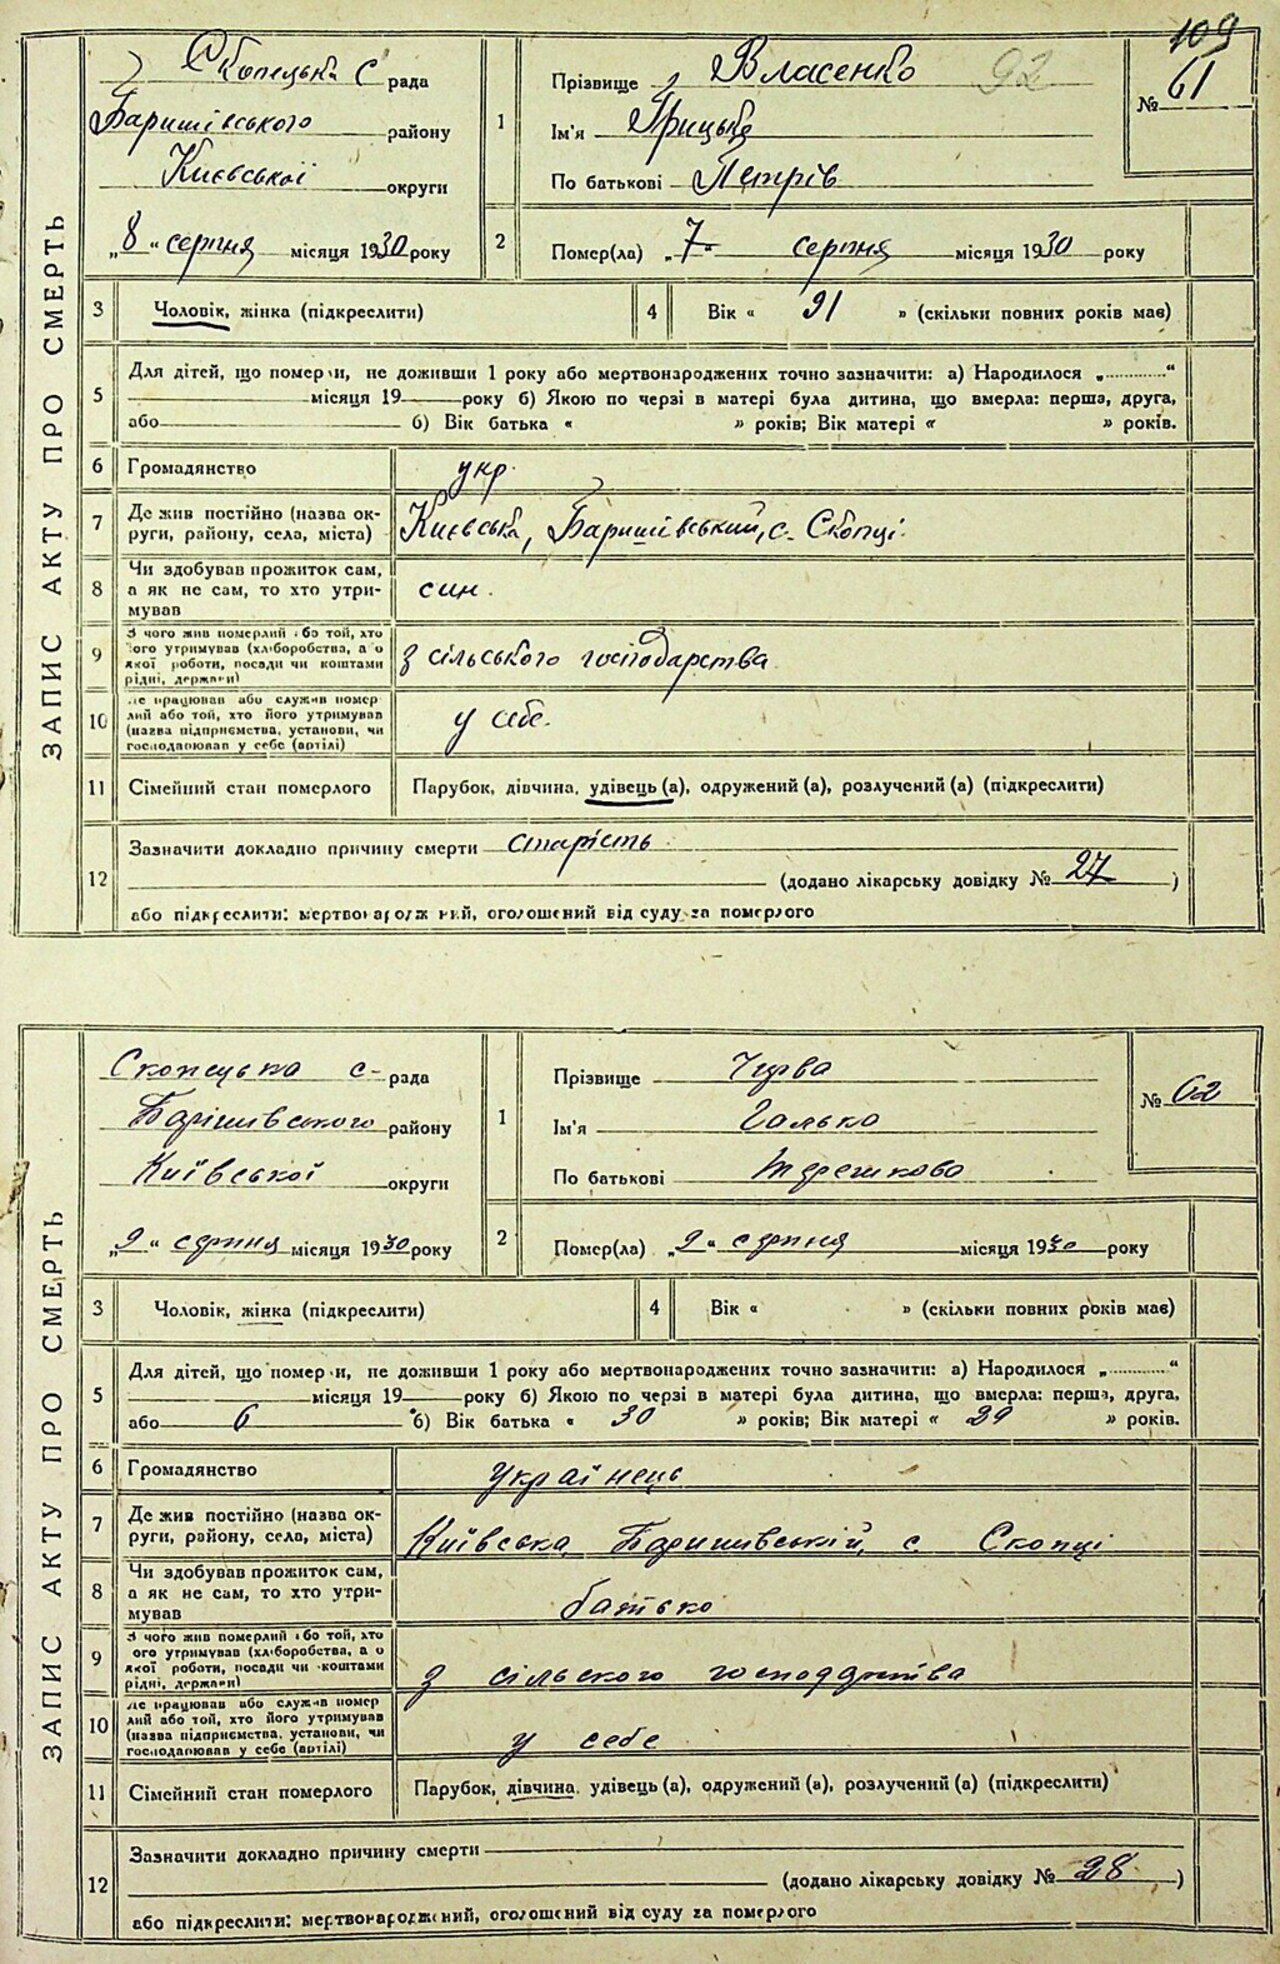 109
ЗАПИС АКТУ ПРО СМЕРТЬ
Скопецька с рада
Баришівського району
Київської округи
„8“ серпня місяця 1930 року
1
Прізвище Власенко 92
Ім'я Грицько
По батькові Петрів
№ 61
2 Помер(ла) „7“ серпня місяця 1930 року
3 Чоловік, жінка (підкреслити)
4 Вік « 91 » (скільки повних років має)
5 Для дітей, що померли, не доживши 1 року або мертвонароджених точно зазначити: а) Народилося „............“
місяця 19 року б) Якою по черзі в матері була дитина, що вмерла: перша, друга,
або б) Вік батька « » років; Вік матері « » років.
6 Громадянство укр.
7 Де жив постійно (назва ок-
руги, району, села, міста) Київська, Баришівський, с. Скопці
8 Чи здобував прожиток сам,
а як не сам, то хто утри-
мував син.
9 З чого жив померлий або той, хто
його утримував (хліборобства, а о
якої роботи, посади чи коштами
рідні, держави) з сільського господарства
10 Де працював або служив помер
лий або той, хто його утримував
(назва підприємства, установи, чи
господарював у себе (артілі) у себе.
11 Сімейний стан померлого Парубок, дівчина, удівець (а), одружений (а), розлучений (а) (підкреслити)
12 Зазначити докладно причину смерти старість
(додано лікарську довідку № 27)
або підкреслити: мертвонароджений, оголошений від суду за померлого
ЗАПИС АКТУ ПРО СМЕРТЬ
Скопецька с- рада
Барішивського району
Київської округи
„9“ серпня місяця 1930 року
1
Прізвище
Ім'я Галько
По батькові Терешкова
№ 62
2 Помер(ла) „9“ серпня місяця 1930 року
3 Чоловік, жінка (підкреслити)
4 Вік « » (скільки повних років має)
5 Для дітей, що померли, не доживши 1 року або мертвонароджених точно зазначити: а) Народилося „............“
місяця 19 року б) Якою по черзі в матері була дитина, що вмерла: перша, друга,
або 6 б) Вік батька « 30 » років; Вік матері « 29 » років.
6 Громадянство українець
7 Де жив постійно (назва ок-
руги, району, села, міста) Київська Баришивській, с. Скопці
8 Чи здобував прожиток сам,
а як не сам, то хто утри-
мував батько
9 З чого жив померлий або той, хто
ого утримував (хліборобства, а о
якої роботи, посади чи коштами
рідні, держави) з сільского
10 Де працював або служив помер
лий або той, хто його утримував
(назва підприємства, установи, чи
господарював у себе (артілі) у себе
11 Сімейний стан померлого Парубок, дівчина, удівець (а), одружений (а), розлучений (а) (підкреслити)
12 Зазначити докладно причину смерти
(додано лікарську довідку № 28)
або підкреслити: мертвонароджений, оголошений від суду за померлого